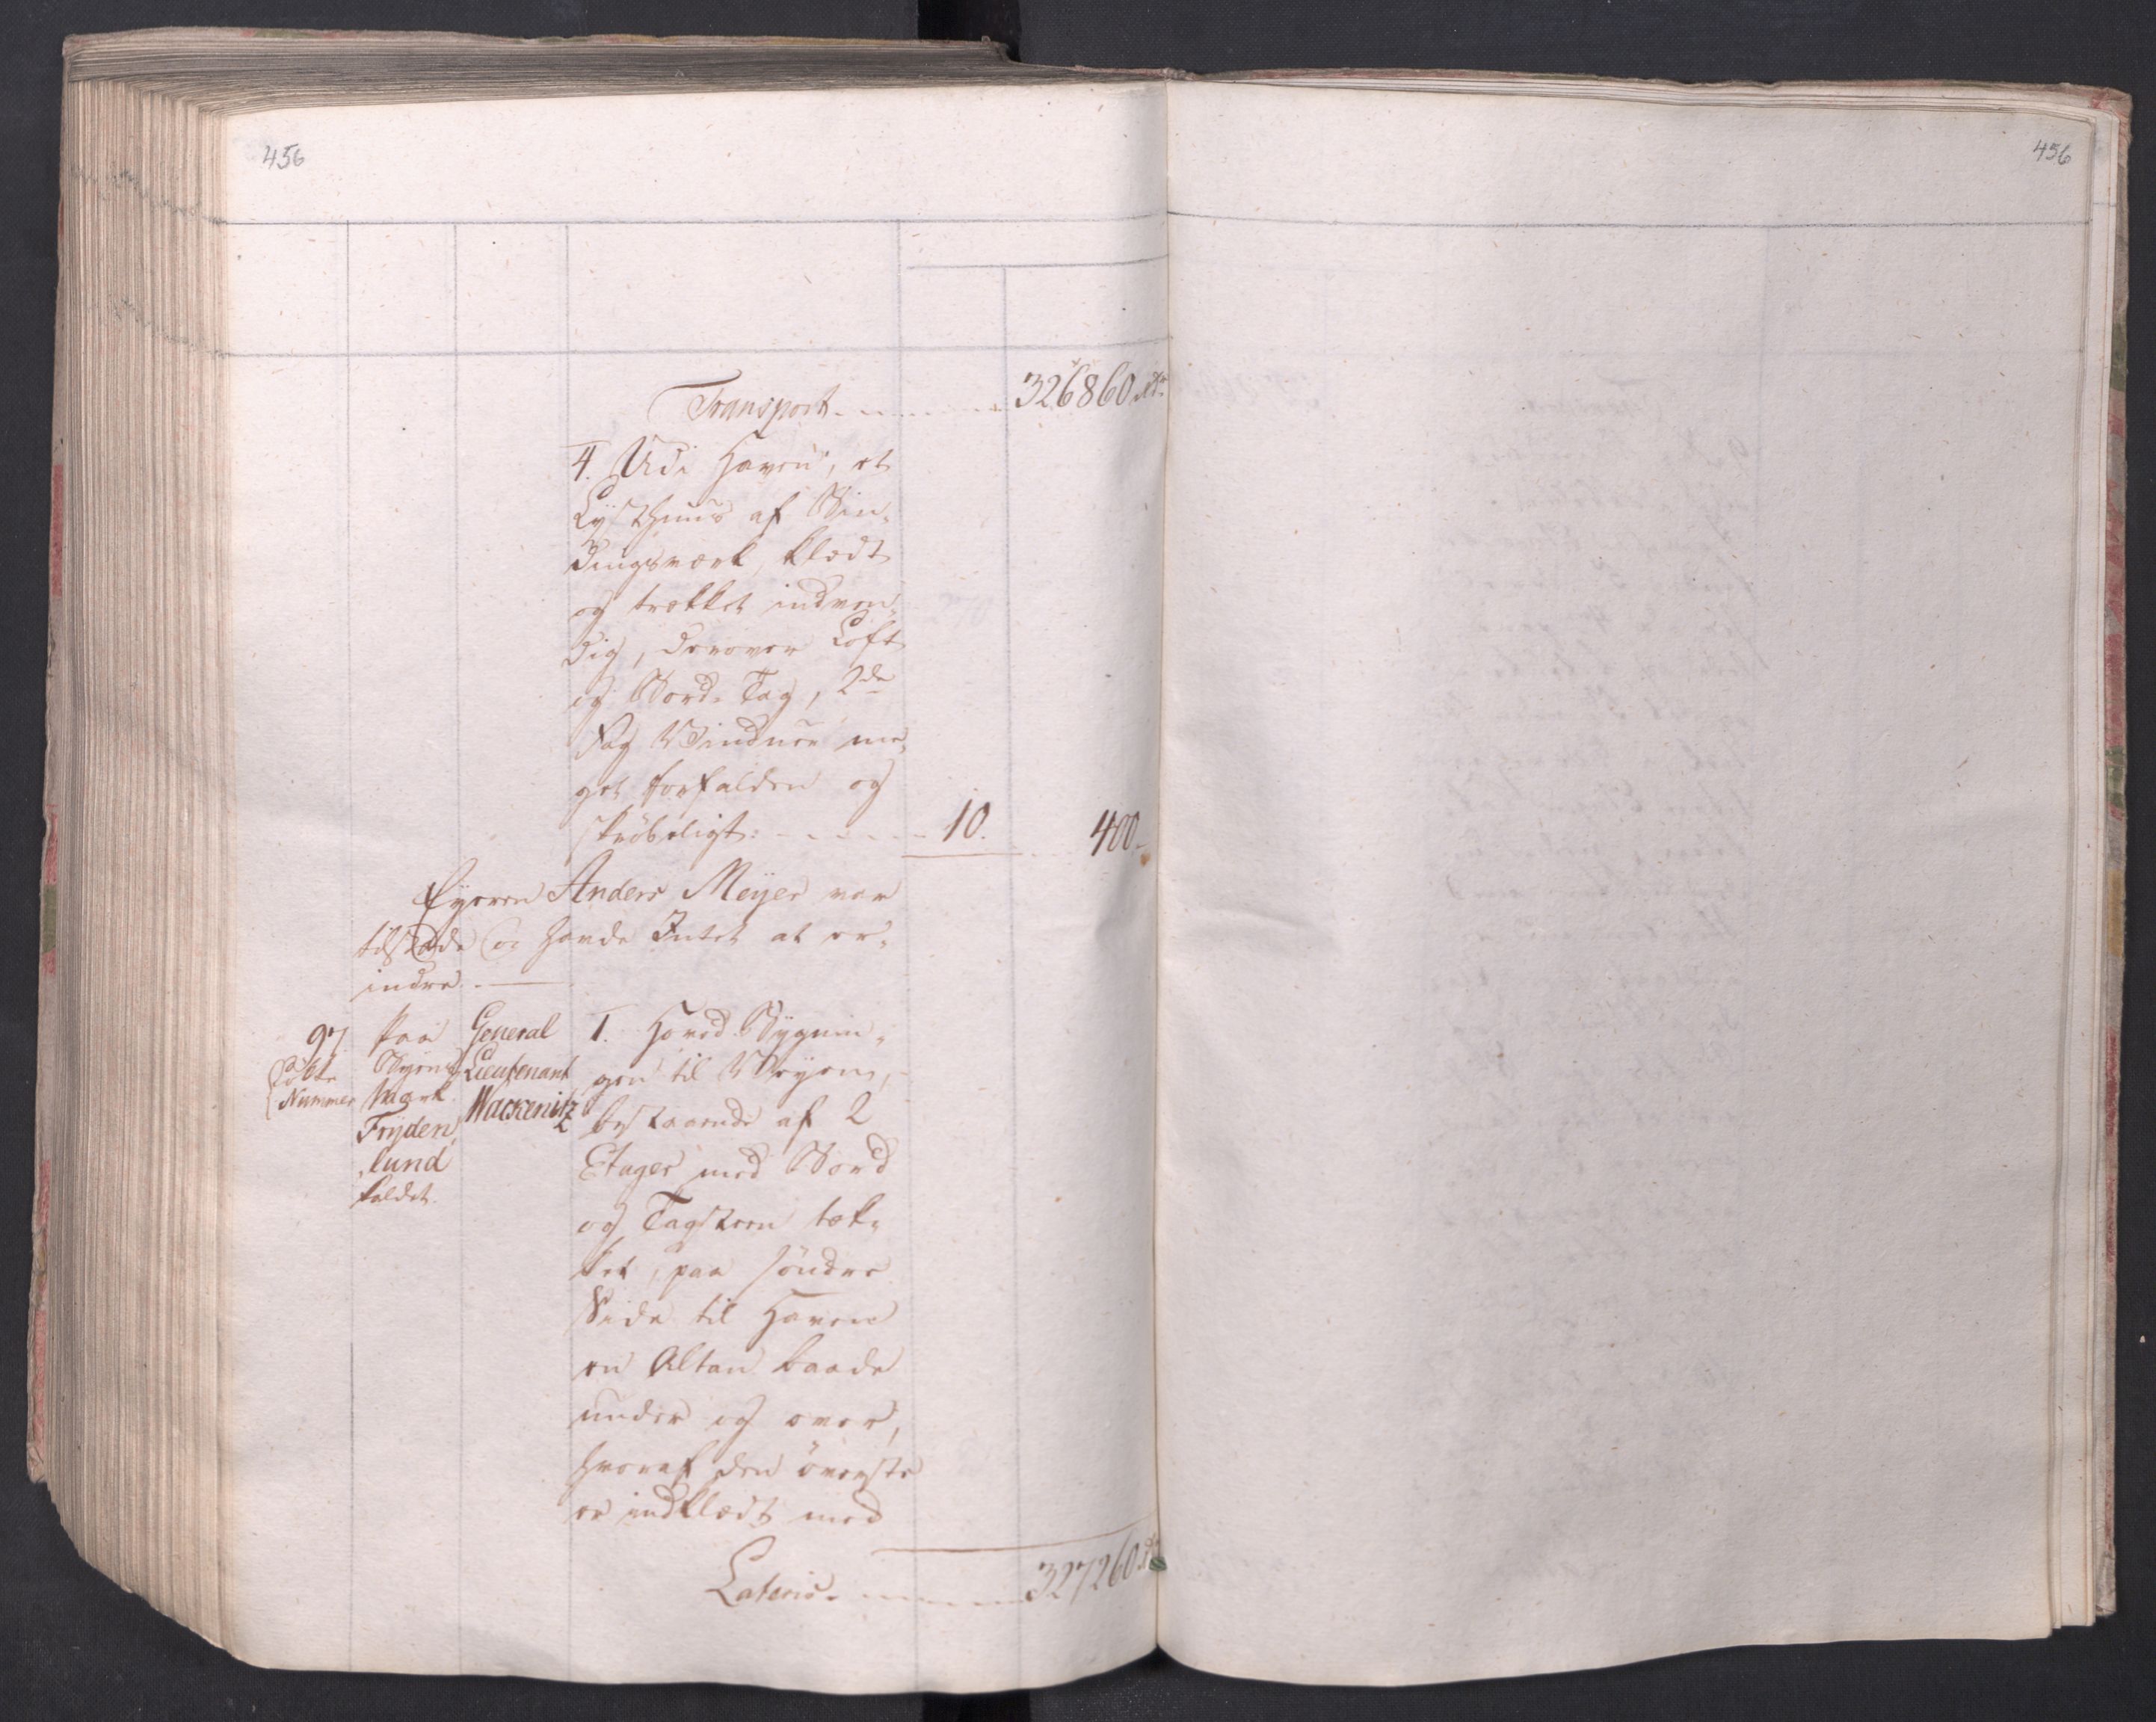 456
456
Transport 326860 rdr
4. Udi Haven, et
Lysthuus af Bin-
dingsværk, klædt
og trækket indven-
dig, derover Loft
og Bord-Tag, 2de
Fag Vinduer me-
get forfalden og
skröbeligt: 10. 400
Ejeren Anders Meyer var
tilstæde og havde Intet at er-
indre.
97
Löbe
Nummer
Paa
Byens
Mark
Fryden-
lund
kaldet.
General
Lieutenant
Wackenitz
1. Hoved-Bygnin-
gen til Vejen,
bestaaende af 2
Etager med Bord
og Tagsteen tæk-
ket, paa söndre
Side til Haven
en Altan baade
under og over,
hvoraf den överste
er indklædt med
Lateris 327260 rdr